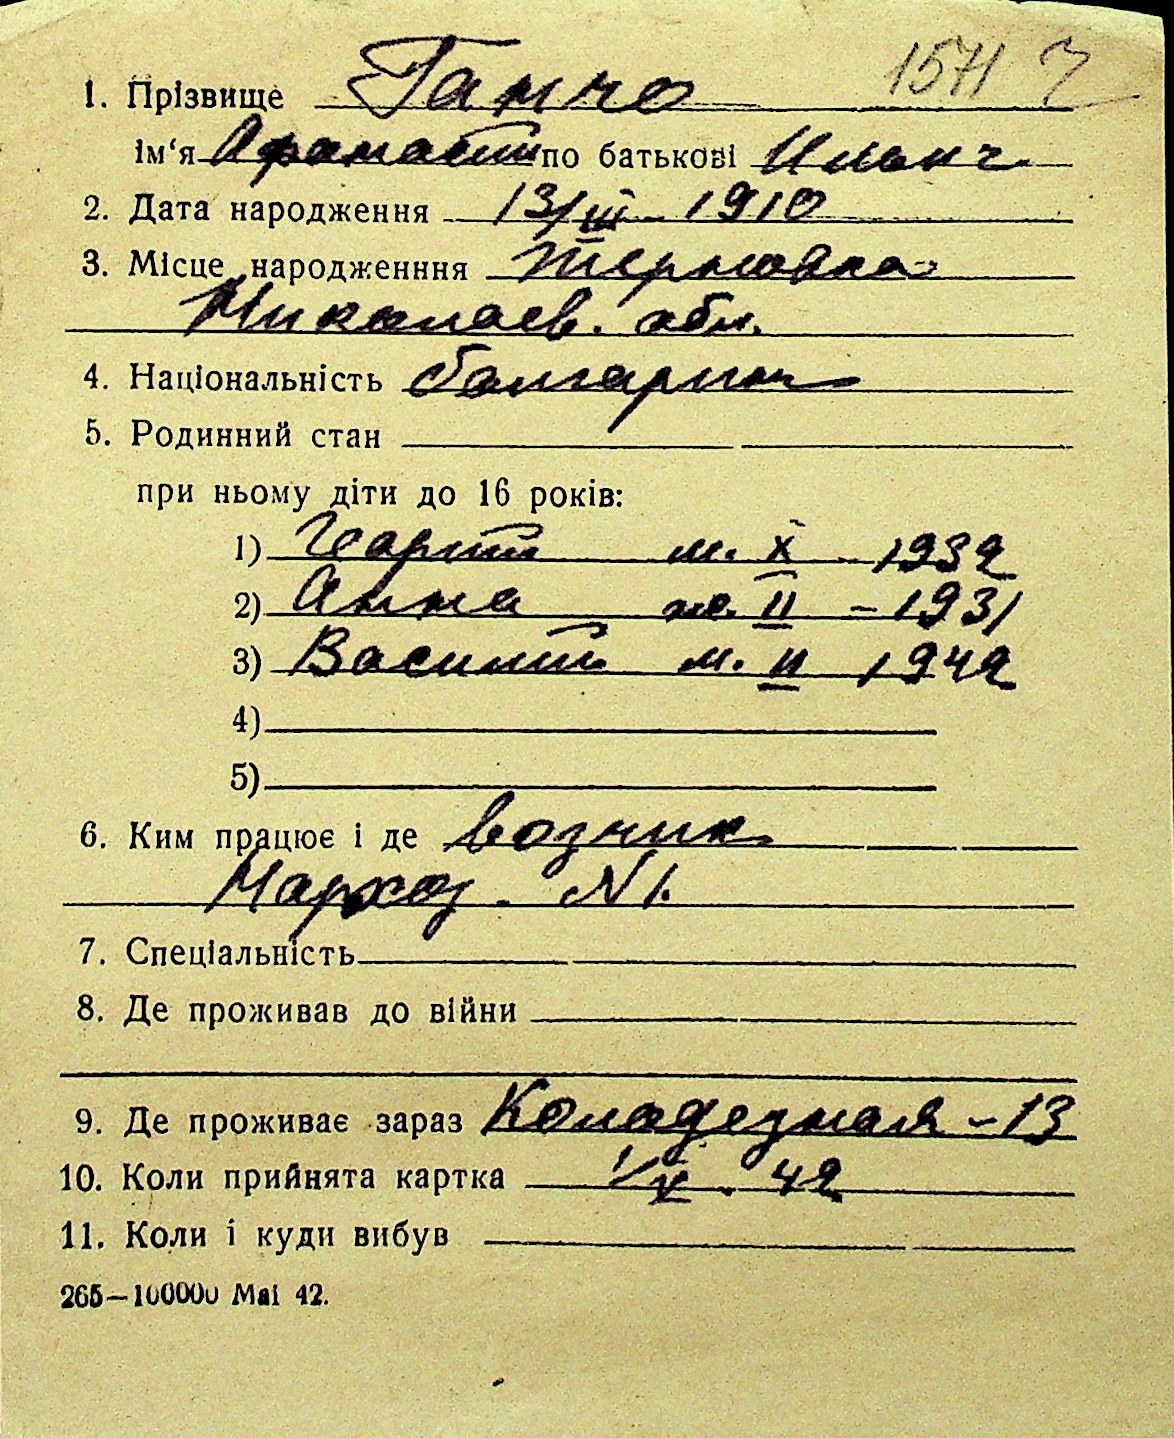 1571
1. Прізвище Ганчо
ім'я Афанасий по батькові Ильич
2. Дата народження 13/III 1910
3. Місце народженння Терновка
Николаев. обл.
4. Національність болгарин
5. Родинний стан
при ньому діти до 16 років:
1) Георгий м. X - 1932
2) Анна ж. II - 1931
3) Василий м. II 1942
4)
5)
6. Ким працює і де возчик
Мархоз. N 1.
7. Спеціальність
8. Де проживав до війни
9. Де проживає зараз Коладезная - 13
10. Коли прийнята картка 1/X. 42
11. Коли і куди вибув
265—100000 Маі 42.